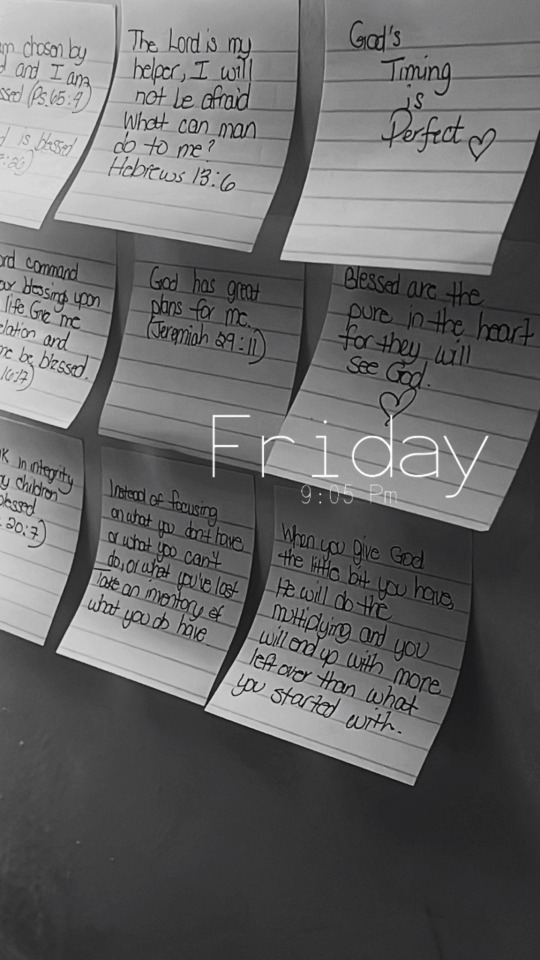 m chosen by
d and I am
ssed (Ps. 65:4)
d is blessed
The Lord is my
helper, I will
not be afraid
What can man
do to me?
Hebrews 13:6
God's
Timing
is
Perfect ♡
ord command
ur blessings upon
life Give me
elation and
me be blessed.
16:17)
God has great
plans for me.
(Jeremiah 29:11)
Blessed are the
pure in the heart
for they will
see God.
♡
Friday
9:05 Pm
K in integrity
y children
blessed
. 20:7)
Instead of focusing
on what you don't have
or what you can't
do, or what you've lost
Take an inventory of
what you do have.
When you give God
the little bit you have,
He will do the
multiplying and you
will end up with more
left over than what
you started with.